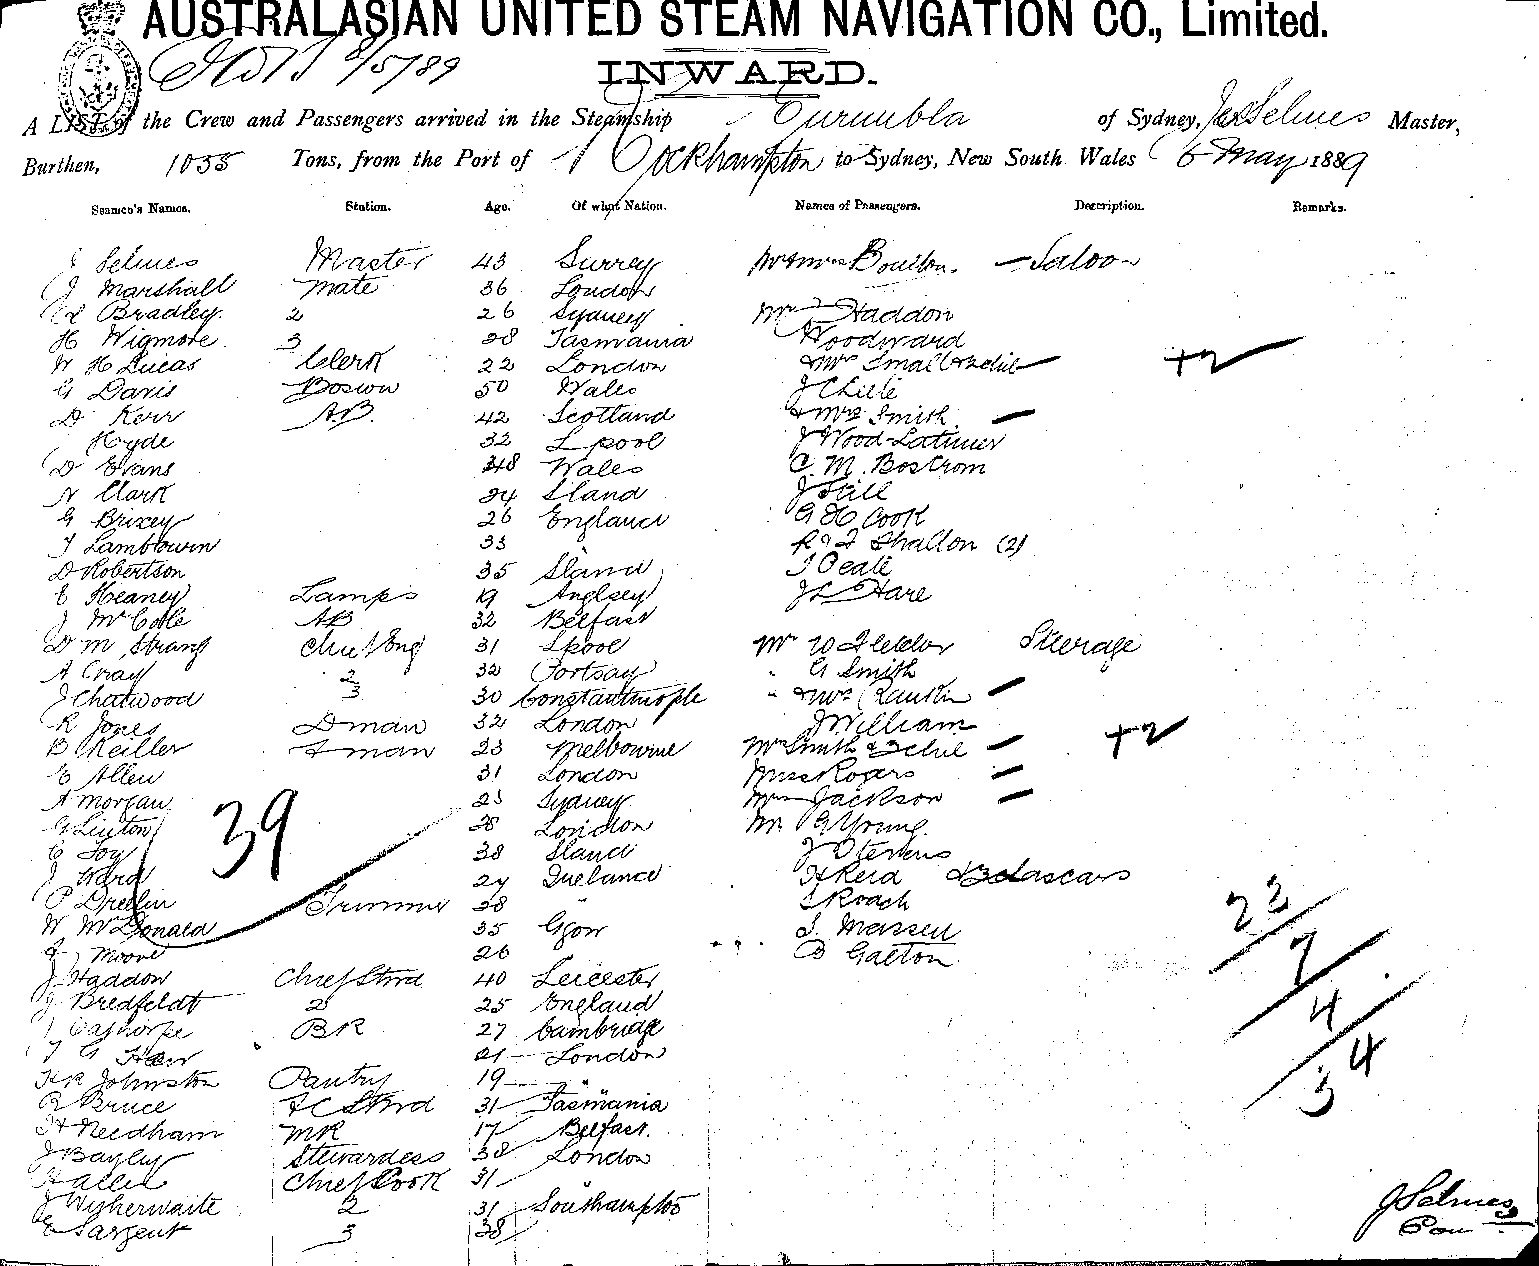 AUSTRALASIAN UNITED STEAM NAVIGATION CO., Limited.
8/5/89
INWARD.
A LIST of the Crew and Passengers arrived in the Steamship Gurumbla of Sydney, J Selmes Master,
Burthen, 1055 Tons, from the Port of Rockhampton to Sydney, New South Wales 6 May 1889
Seamen's Names. Station. Age. Of what Nation. Names of Passengers. Description. Remarks.
J Selmes Master 43 Surrey Mr & Mrs Boulton. Saloon
J Marshall Mate 36 London
Bradley. 2 26 Sydney Mr Haddon
H Wigmore 3 28 Tasmania Woodward
W H Lucas Clerk 22 London & Mrs Small & 2 chil +2
G Davis Bosun 50 Wales J
D Kerr AB. 42 Scotland & Mrs Smith
Hyde 32 Lpool J Wood-Latimer
D Evans 48 Wales C. M. Bostrom
N Clark 24 Sland J Still
G Brixey 26 England G H Cook
T 33 R & J Shallon (2)
D Robertson 35 Sland J Peale
E Heaney Lamps 19 Anglsey J L Hare
J McCole AB 32 Belfast
D M Strang Chief Eng 31 Lpool Mr W Steerage
A Cray 2 32 Portsay " G Smith
J Chatwood 3 30 Constantinople " & Mrs Rankin
R Jones Dman 32 London J William
B Keiller Fman 23 Melbourne Mrs Smith & 3 chil +2
E Allen 31 London Miss Rogers
A Morgan 23 Sydney Mrs Jackson
G Linton 28 London Mr G Young.
C Foy 38 Sland J Stevens
J Ward 24 Ireland H Reid & 3 Lascars
P Trimmer 28 " Roach
W McDonald 35 Ggow S. Massen
J Moore 26 B Galton
J Haddon Chief Stwd 40 Leicester
J Bredfeldt 2 25 England
Capthorpe BR 27 Cambridge
21 London
H R Johnston Pantry 19 "
R Bruce F C Stwd 31 Tasmania
H Needham MR 17 Belfast.
J Bayley Stewardess 38 London
Chief Cook 31
J Wyherwaite 2 31 Southampton
E Sargent 3 38
39
23
7
4
4
3
J Selmes